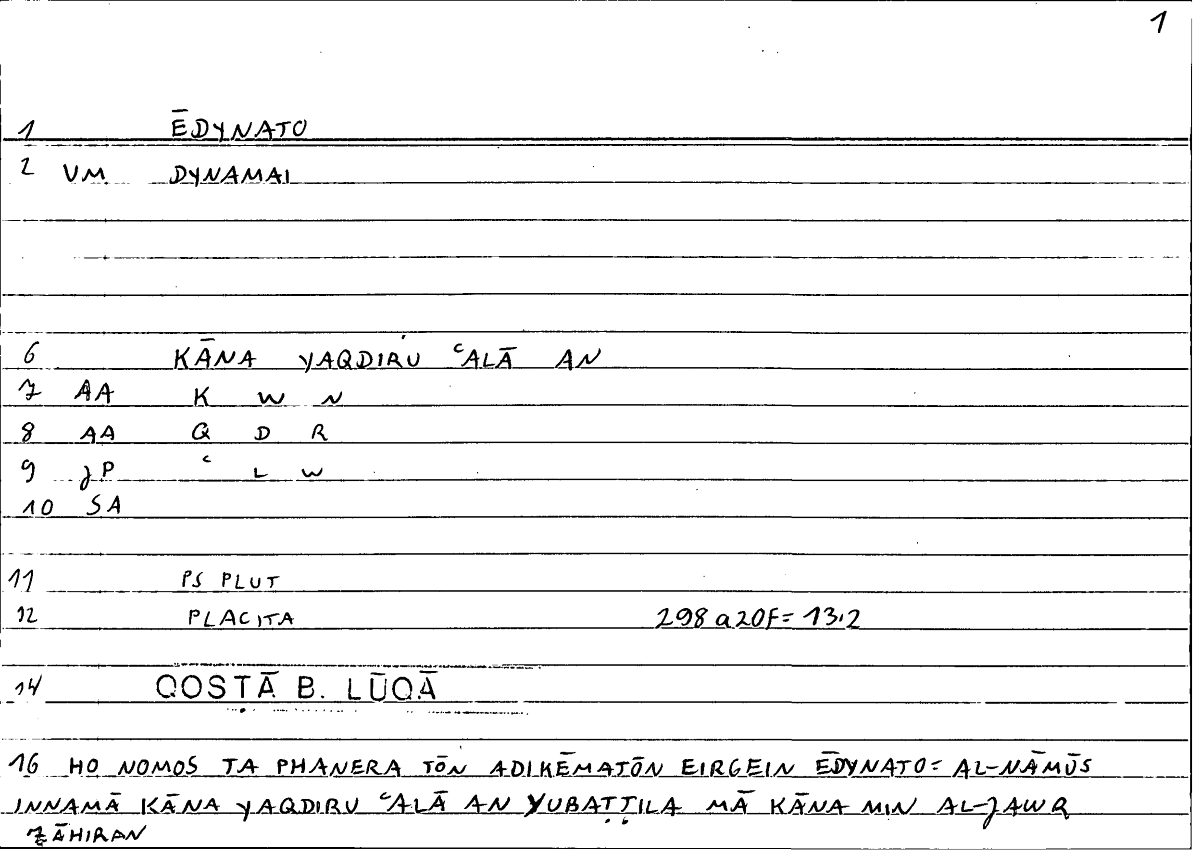 1
1 ĒDYNATO
2 VM DYNAMAI
6 KĀNA YAQDIRU ʿALĀ AN
7 AA K W N
8 AA Q D R
9 JP ʿ L W
10 SA
11 PS PLUT
12 PLACITA 298 a 20F = 13,2
14 QOSTĀ B. LŪQĀ
16 HO NOMOS TA PHANERA TŌN ADIKĒMATŌN EIRGEIN ĒDYNATO = AL-NĀMŪS
INNAMĀ KĀNA YAQDIRU ʿALĀ AN YUBAṬṬILA MĀ KĀNA MIN AL-JAWR
ẒĀHIRAN